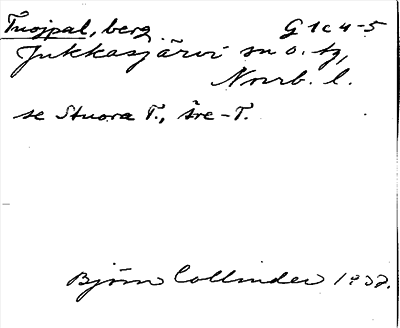 Tuojpal, berg G1c4-5
Jukkasjärvi sn o. tg,
Norrb. l.
se Stuora T., Sre-T.
Björn Collinder